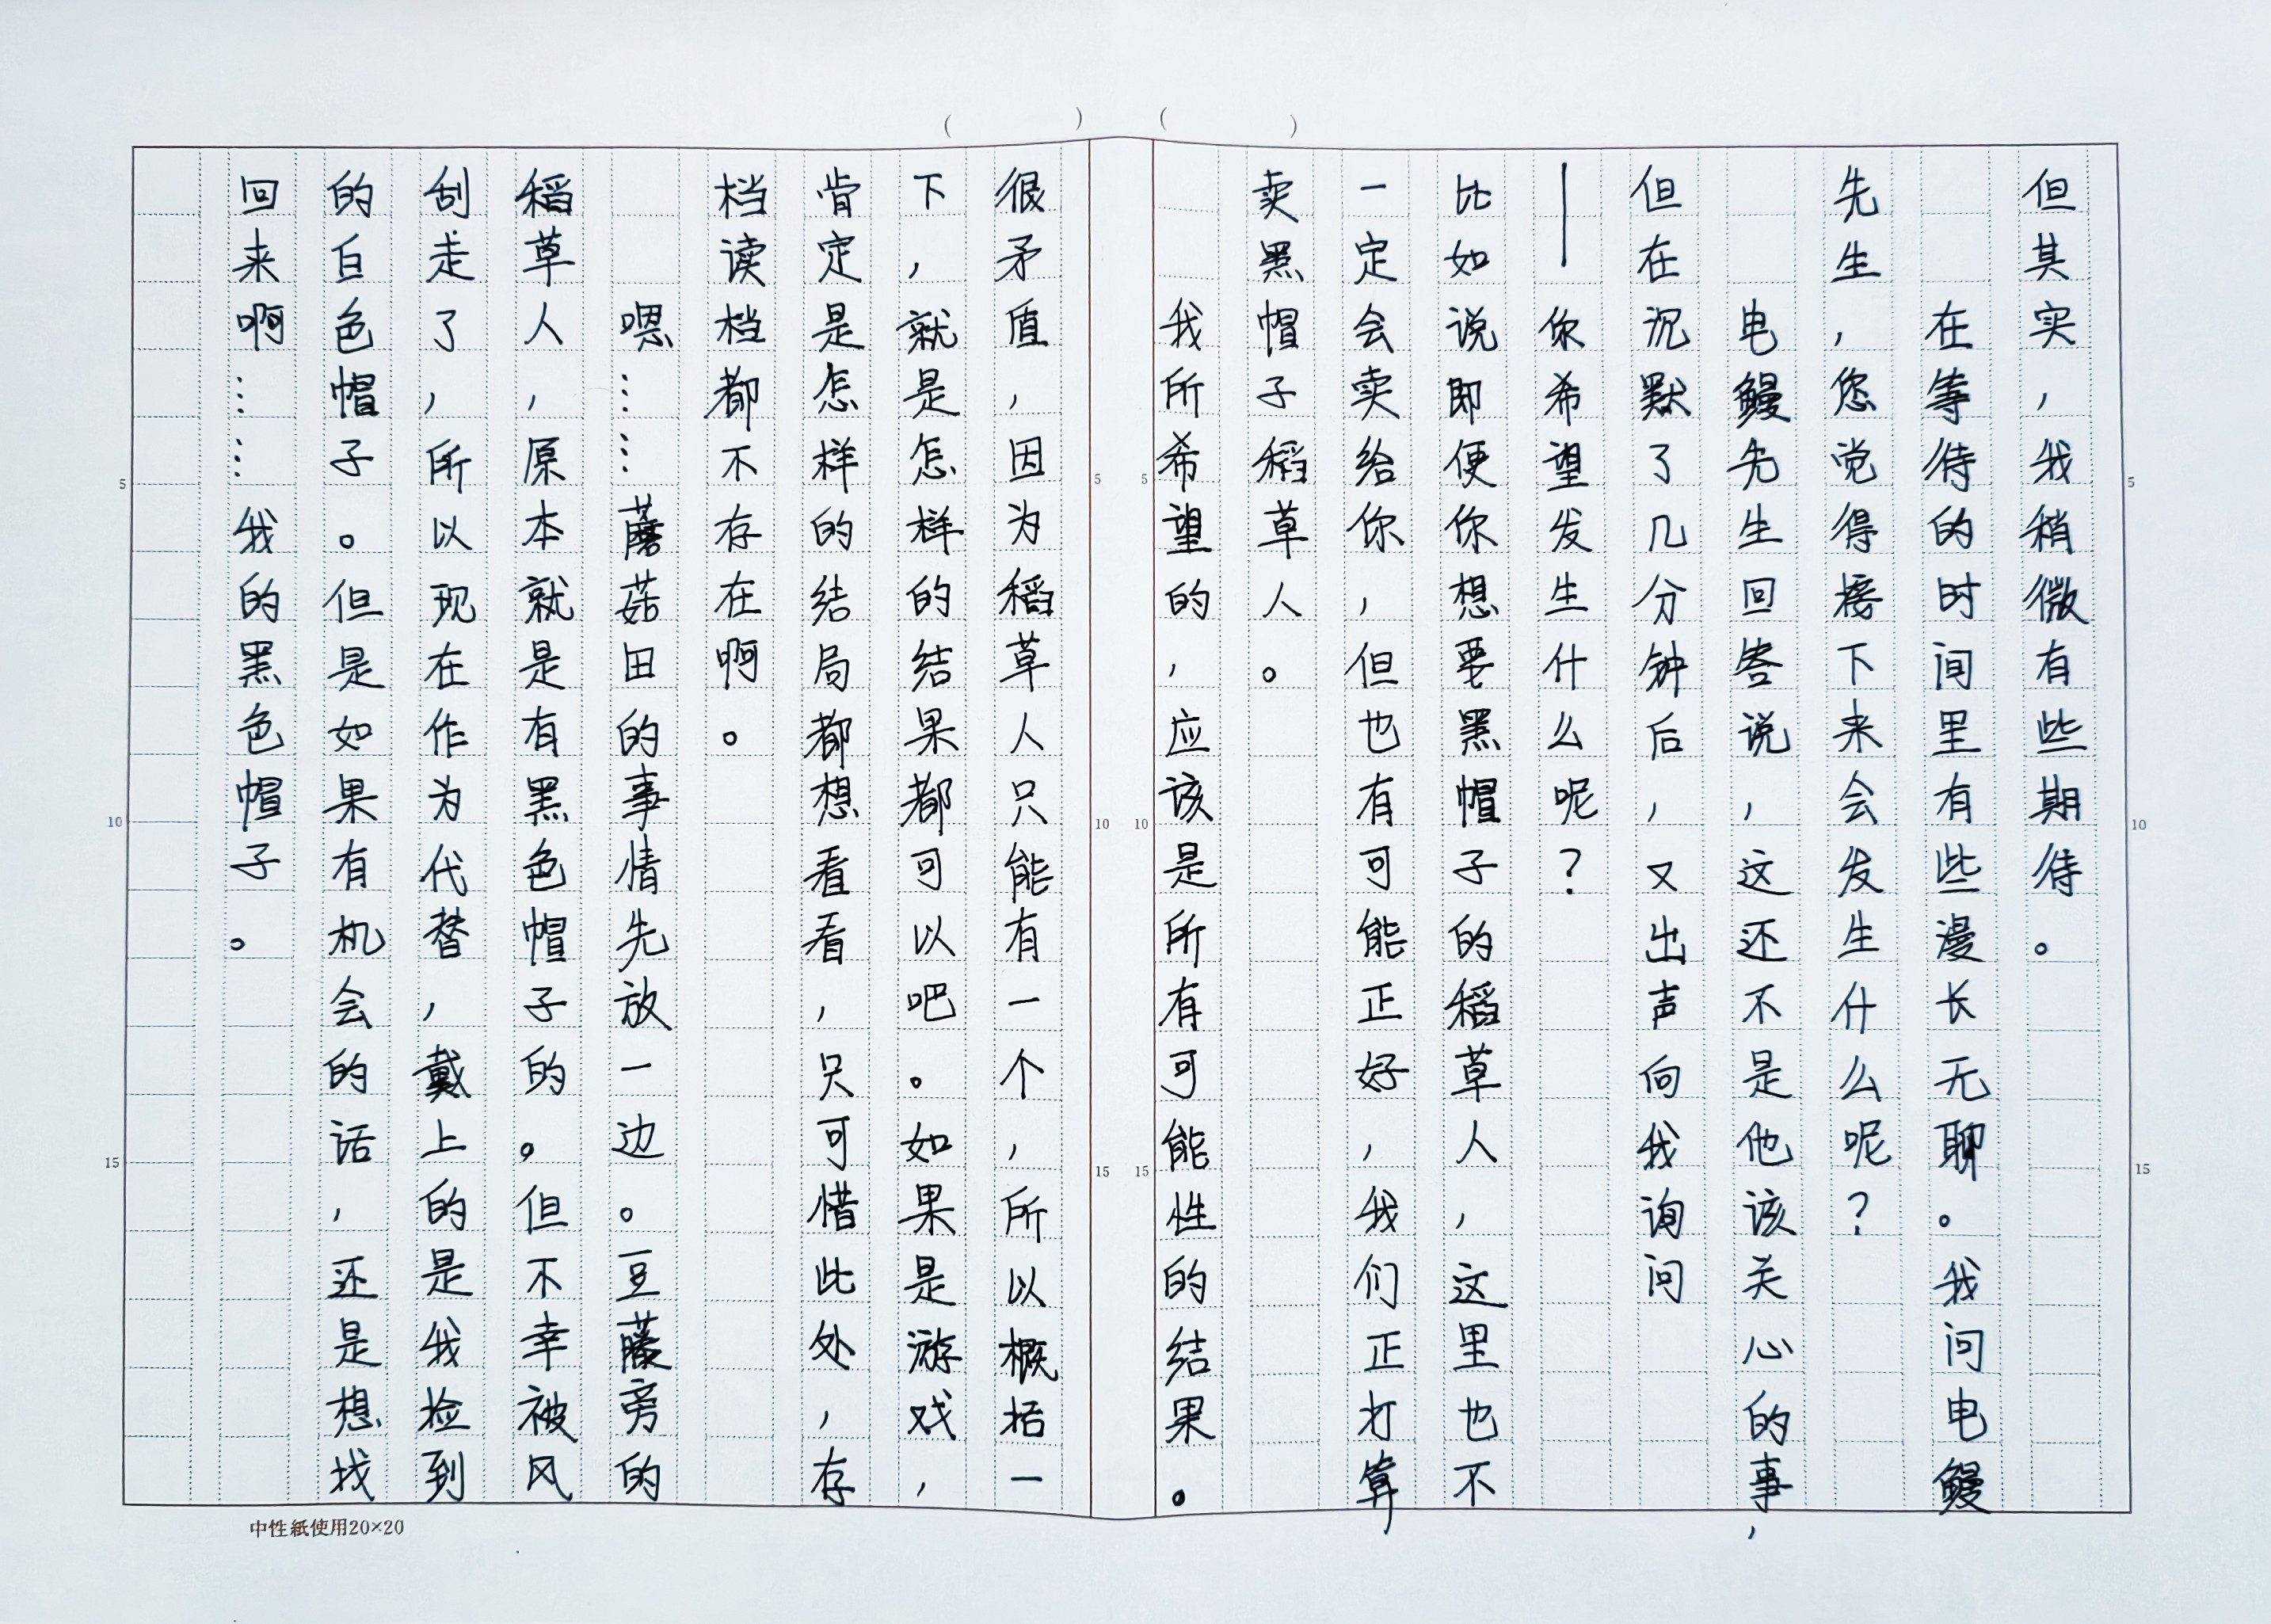 但其实，我稍微有些期待。
在等待的时间里有些漫长无聊。我问电鳗
先生，您觉得接下来会发生什么呢？
电鳗先生回答说，这还不是他该关心的事，
但在沉默了几分钟后，又出声向我询问
——你希望发生什么呢？
比如说即便你想要黑帽子的稻草人，这里也不
一定会卖给你，但也有可能正好，我们正打算
卖黑帽子稻草人。
我所希望的，应该是所有可能性的结果。
很矛盾，因为稻草人只能有一个，所以概括一
下，就是怎样的结果都可以吧。如果是游戏，
肯定是怎样的结局都想看看，只可惜此处，存
档读档都不存在啊。
嗯……蘑菇田的事情先放一边。豆藤旁的
稻草人，原本就是有黑色帽子的。但不幸被风
刮走了，所以现在作为代替，戴上的是我捡到
的白色帽子。但是如果有机会的话，还是想找
回来啊……我的黑色帽子。
5
10
15
5
10
15
5
10
15
5
10
15
中性紙使用20×20